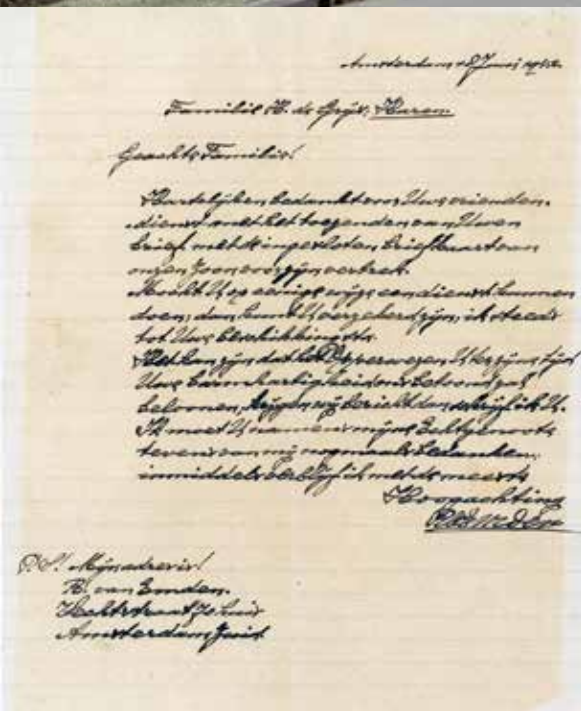 Amsterdam 18 Juni 1942.
Familie H. de Grijs. Hurem
Geachte Familie!
Hartelijken bedankt voor Uwe vrienden-
dienst met het toezenden van Uwen
brief met de ingesloten briefkaart van
onzen Zoon voor zijn vertrek.
Mocht U op eenige wijze een dienst kunnen
doen, dan kunt U verzekerd zijn, ik steeds
tot Uwe beschikking sta.
Het kan zijn dat de U te zijner tijd
Uwe barmhartigheid ons betoond zal
beloonen, krijgen wij bericht dan schrijf ik U.
Ik moet U namens mijne Echtgenoote
tevens van mij nogmaals bedanken,
inmiddels verblijf ik met de meeste
Hoogachting
P.S. Mijn adres is!
R. van Emden.
Vechtstraat huis
Amsterdam Zuid.